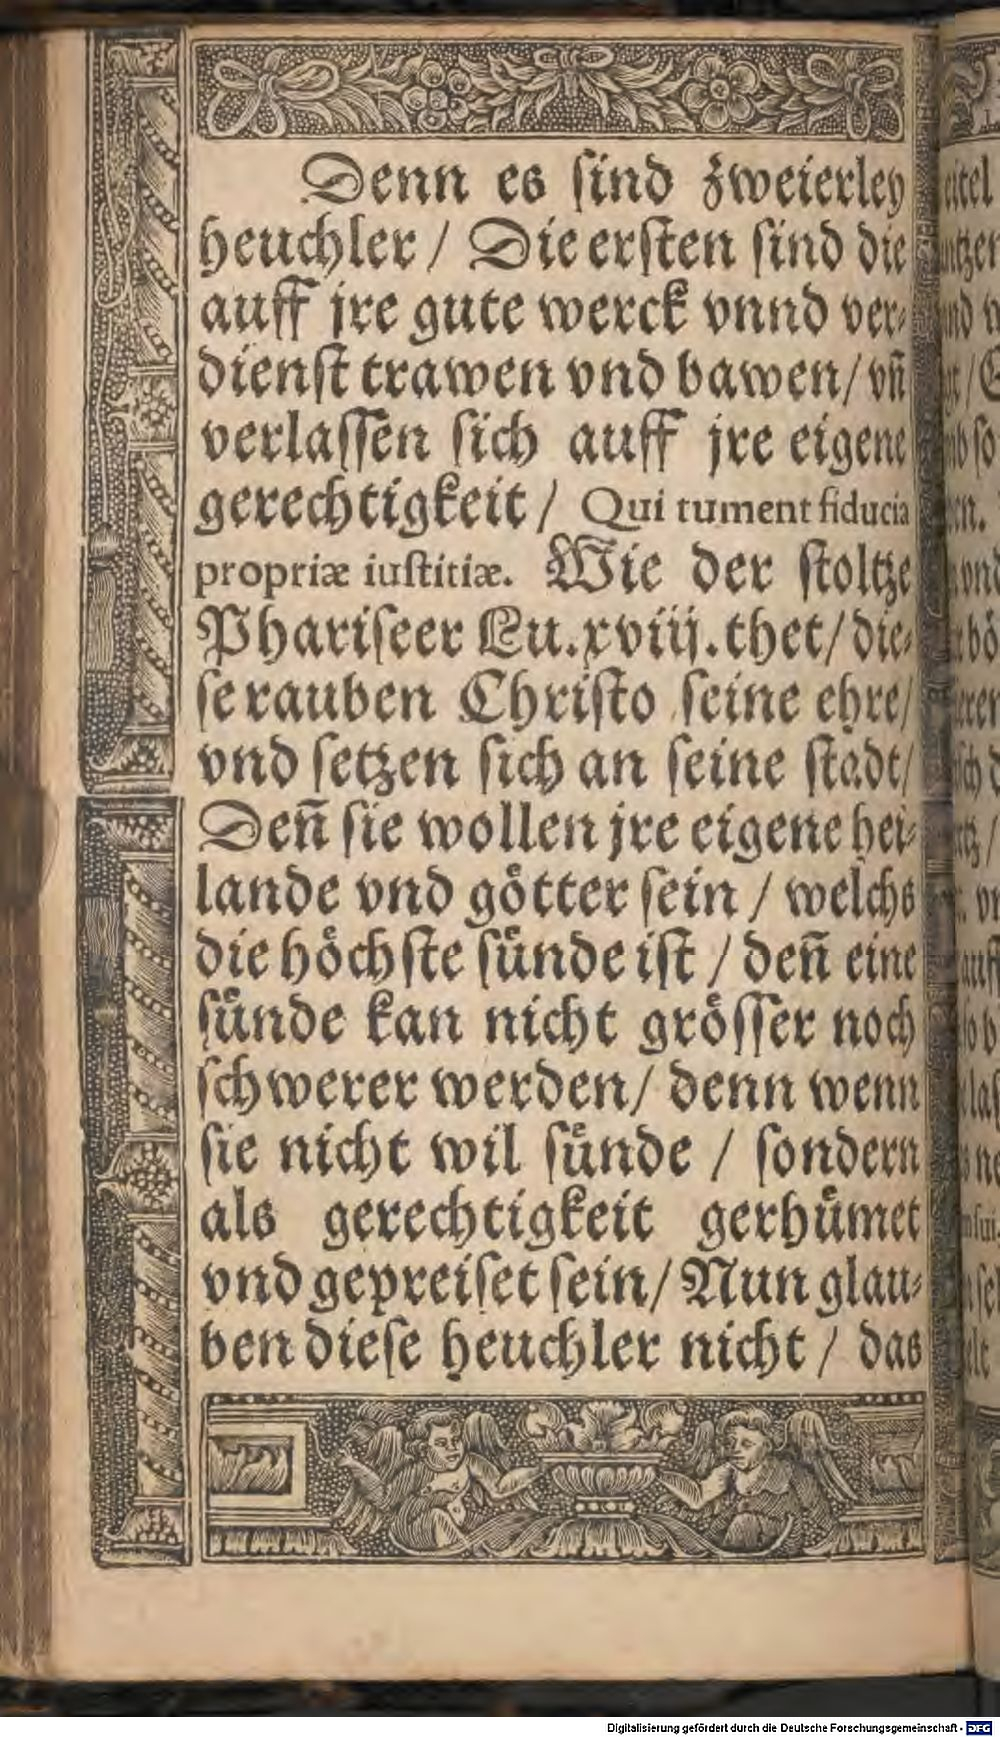 Denn es ſind zweierley
heuchler / Die erſten ſind die
auff jre gute werck vnnd ver⸗
dienſt trawen vnd bawen / vñ
verlaſſen ſich auff jre eigene
gerechtigkeit / Qui tument fiducia
propriæ iuſtitiæ. Wie der ſtoltze
Phariſeer Lu. xviij. thet / die⸗
ſe rauben Chriſto ſeine ehre /
vnd ſetzen ſich an ſeine ſtadt /
Deñ ſie wollen jre eigene hei⸗
lande vnd goͤtter ſein / welchs
die hoͤchſte ſuͤnde iſt / deñ eine
ſuͤnde kan nicht groͤſſer noch
ſchwerer werden / denn wenn
ſie nicht wil ſuͤnde / ſondern
als gerechtigkeit gerhuͤmet
vnd gepreiſet ſein / Nun glau⸗
ben dieſe heuchler nicht / das
Digitalisierung gefördert durch die Deutsche Forschungsgemeinschaft - DFG